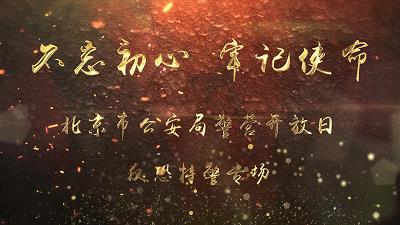 不忘初心 牢记使命
北京市公安局警营开放日
反恐特警专场